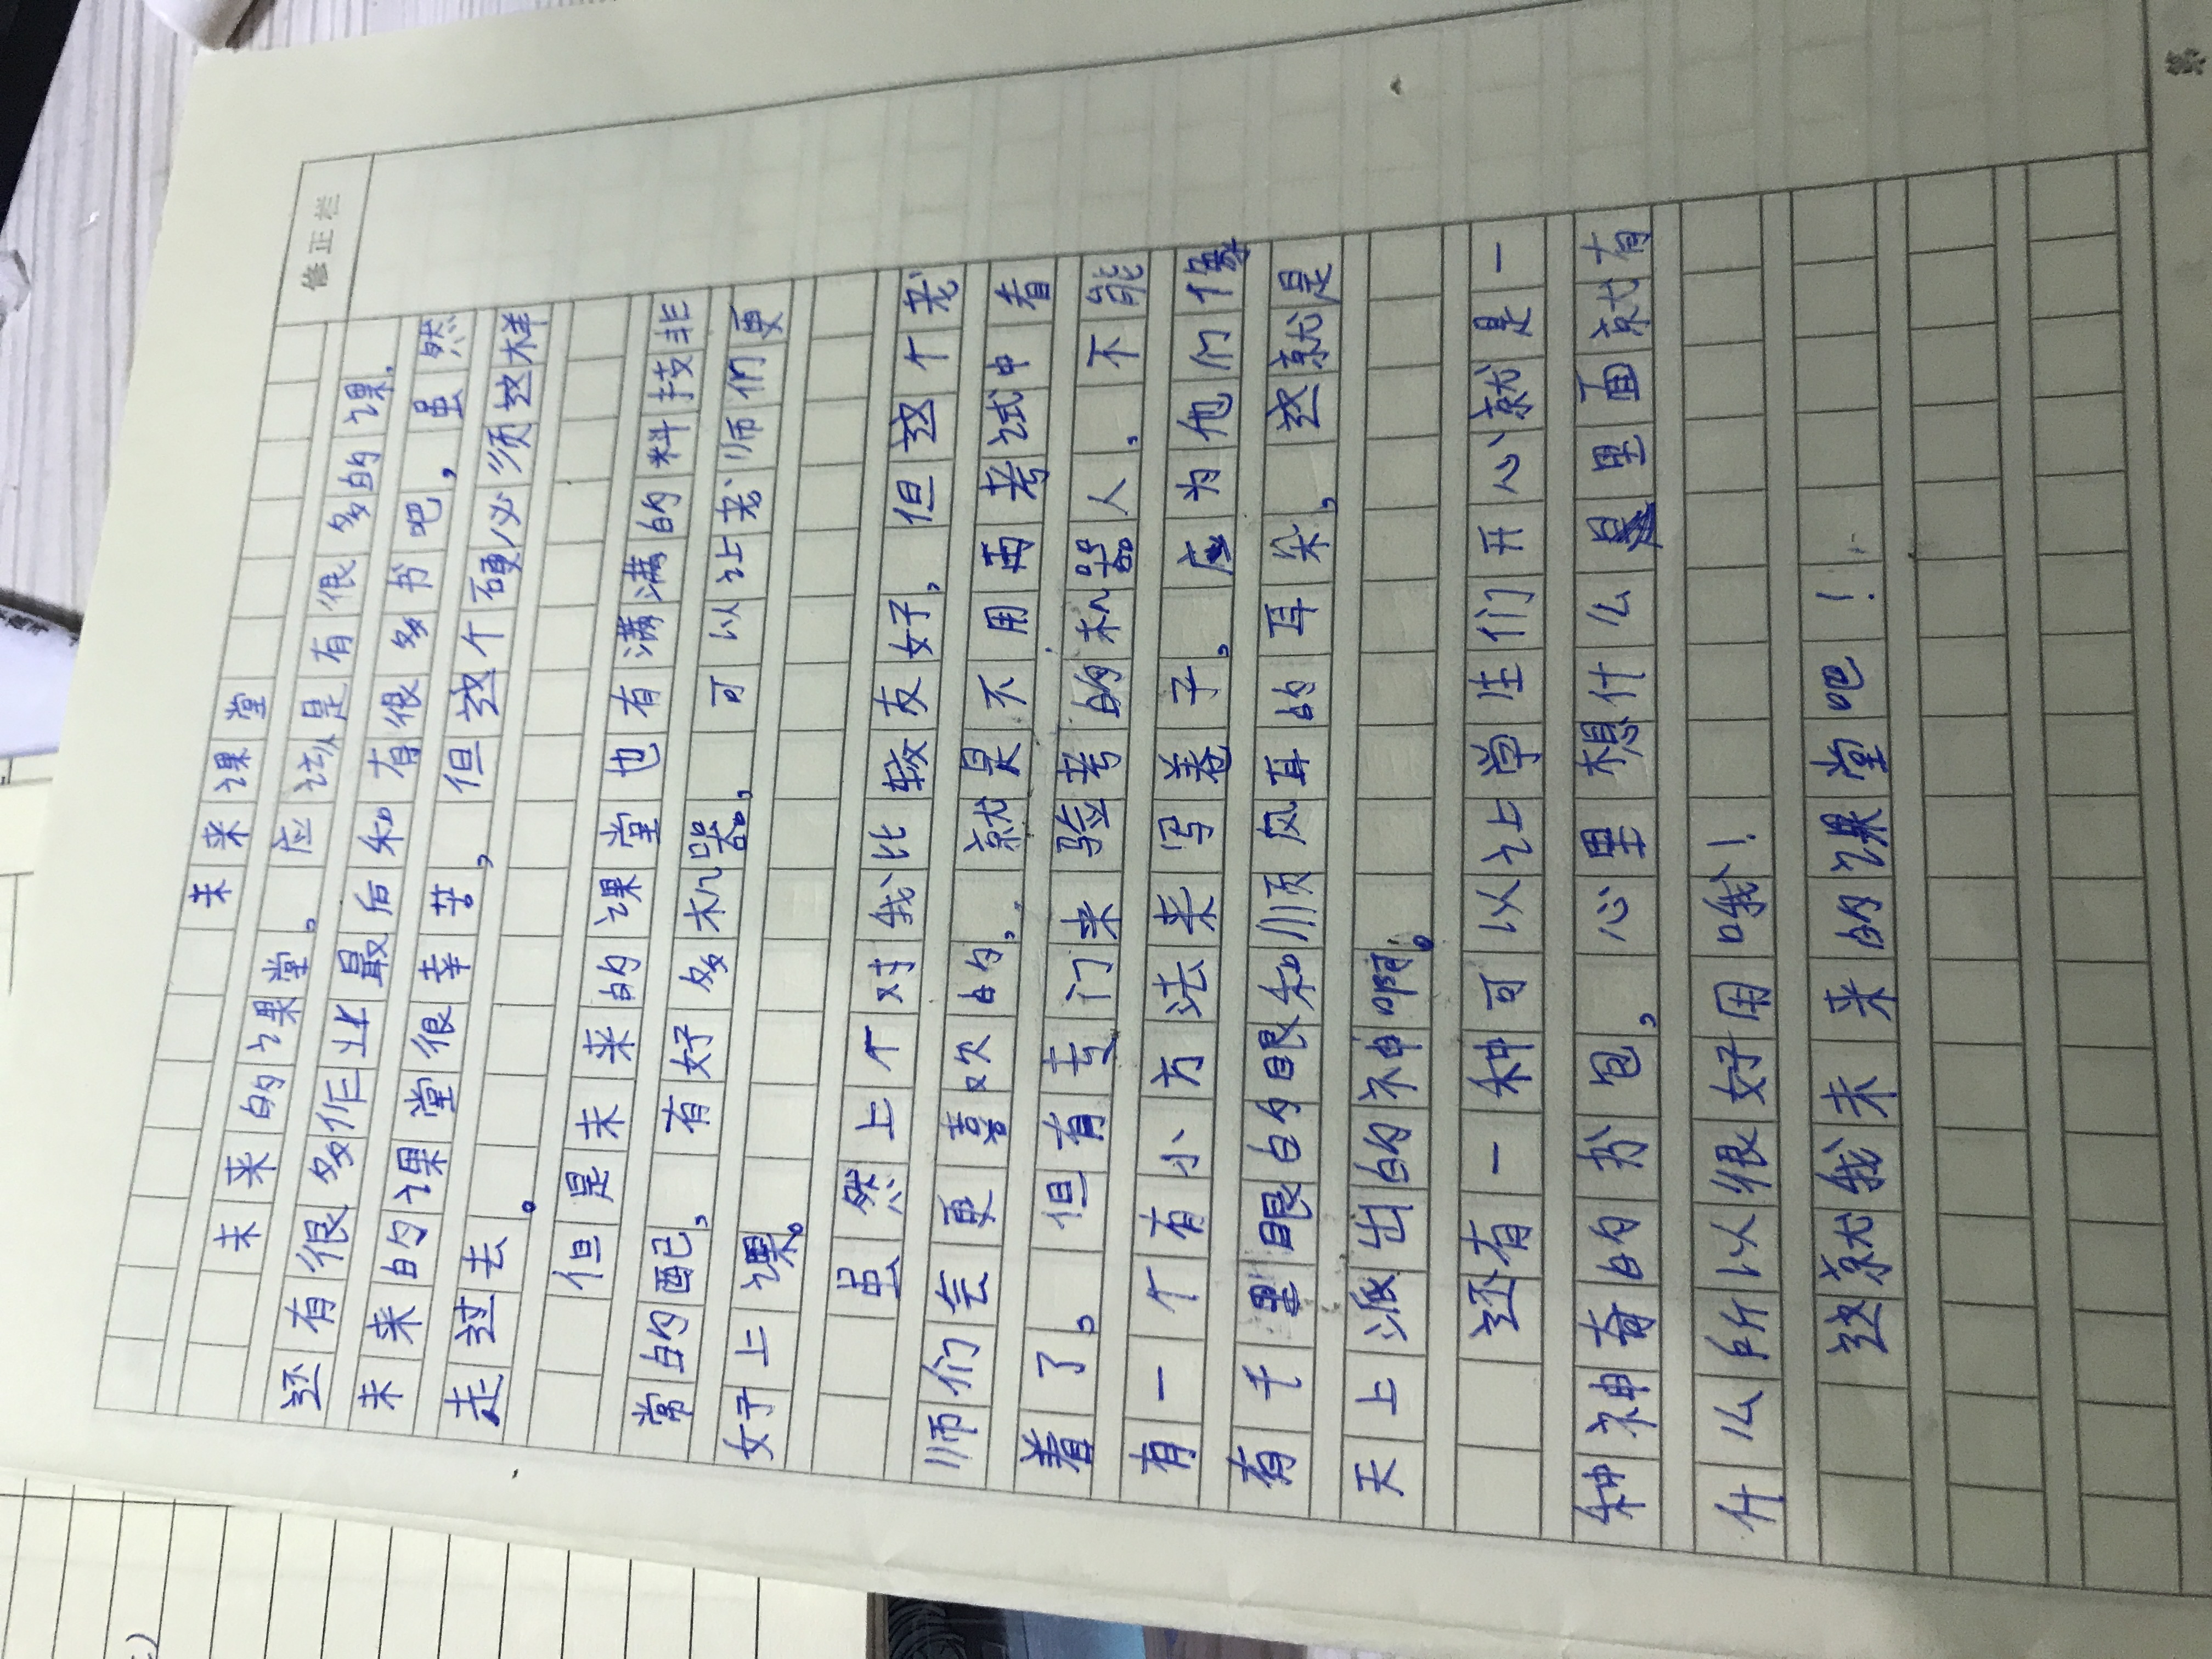 修正栏
未来课堂
未来的课堂。应该是有很多的课,
还有很多作业最后和有很多书吧,虽然
未来的课堂很幸苦,但这个硬必须这样
走过去。
但是未来的课堂也有满满的科技非
常的配己,有好多机器,可以让老师们更
好上课。
虽然上个对我比较友好,但这个老
师们会更喜欢的,就是不用再考试中看
着了。但有专门来验考的机器人。不能
有一个有小方法来写卷子,应为他们像
有千里眼的眼和顺风耳的耳朵,这就是
天上派出的神啊。
还有一种可以让学生们开心就是一
种神奇的书包,心里想什么里面就有
什么所以很好用哦!
这就我未来的课堂吧!